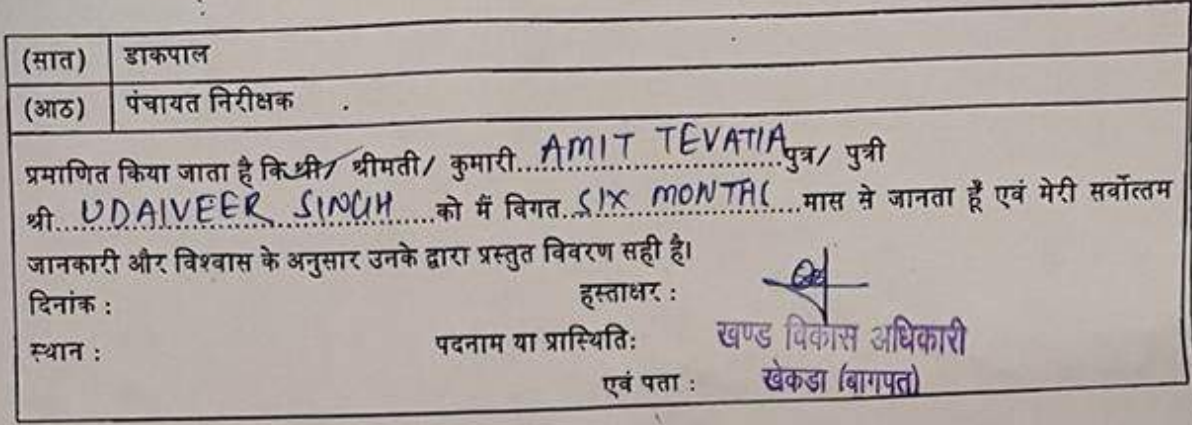 (सात) डाकपाल
(आठ) पंचायत निरीक्षक .
प्रमाणित किया जाता है कि श्री/ श्रीमती/ कुमारी....AMIT TEVATIA पुत्र/ पुत्री
श्री....UDAIVEER SINGH....को मैं विगत..SIX MONTHS...मास से जानता हूँ एवं मेरी सर्वोत्तम
जानकारी और विश्वास के अनुसार उनके द्वारा प्रस्तुत विवरण सही है।
दिनांक : हस्ताक्षर :
स्थान : पदनाम या प्रास्थिति: खण्ड विकास अधिकारी
एवं पता : खेकडा (बागपत)